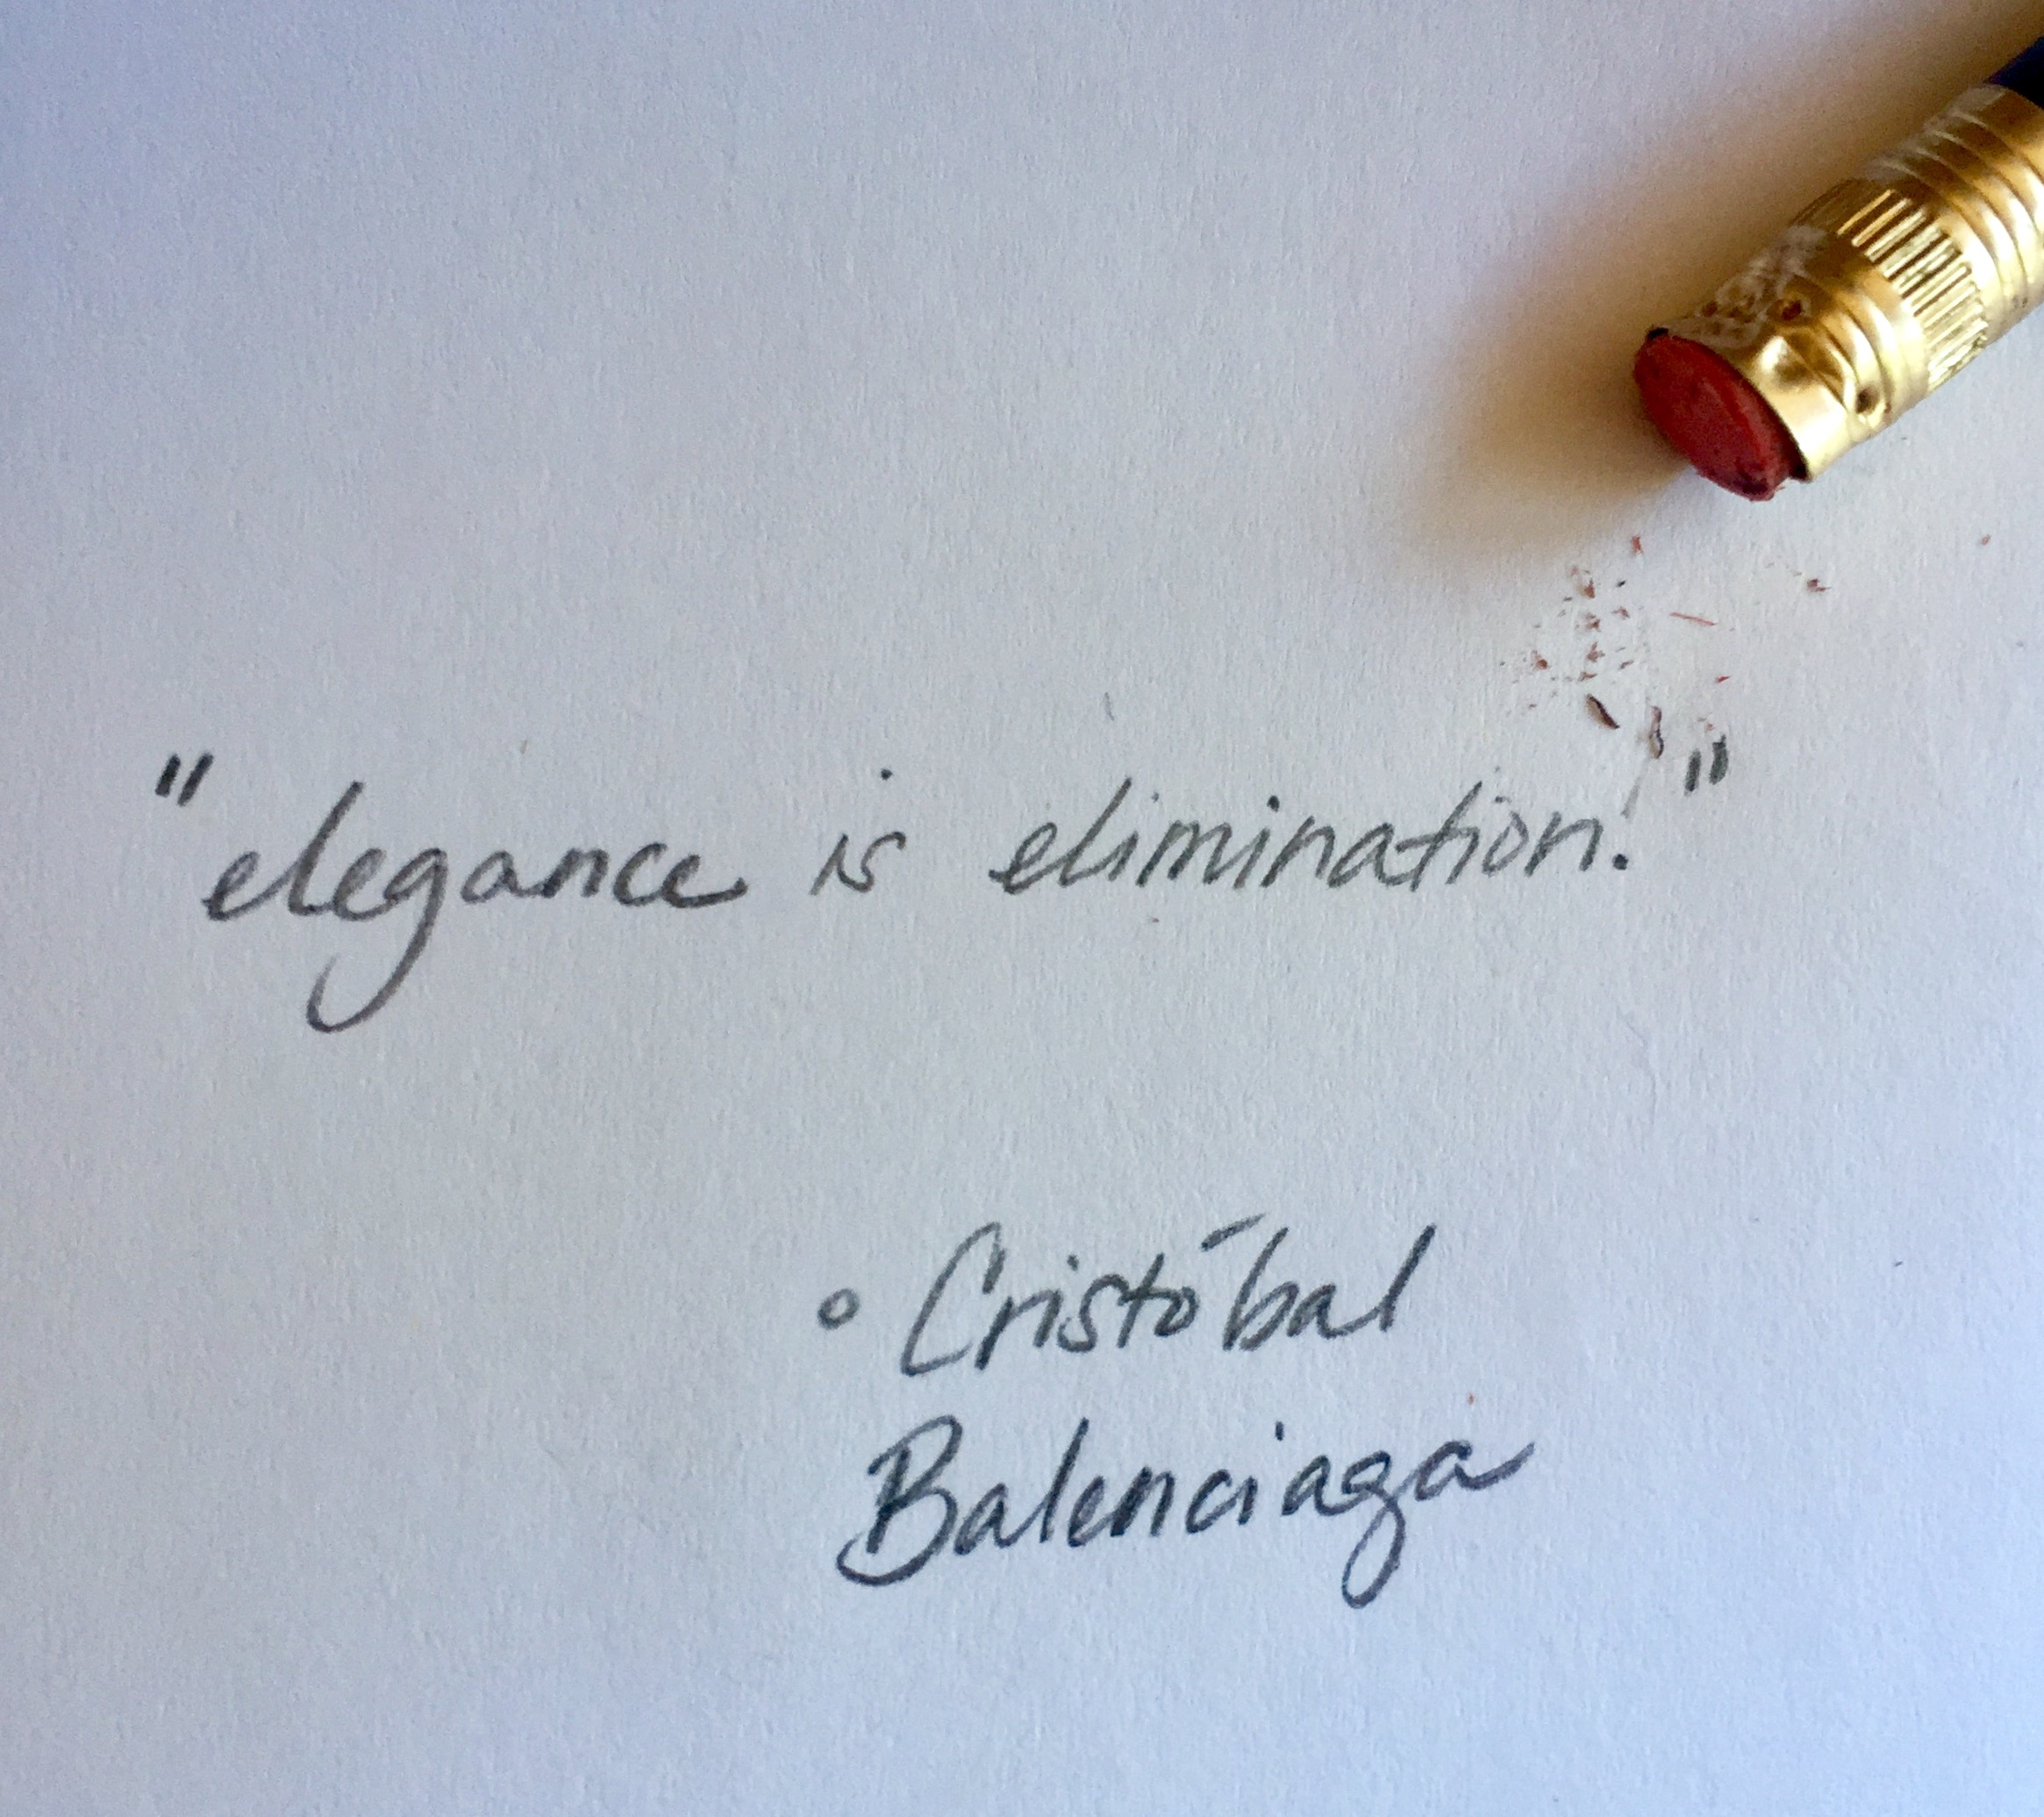 "elegance is elimination."
° Cristóbal
Balenciaga